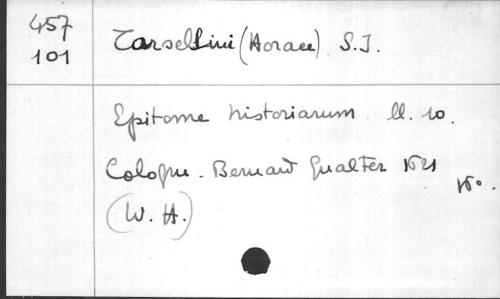 457
101
Tarsellini (Horace) S.J.
Epitome historiarum ll. 10.
Cologne. Bernard Gualter 1621
16°.
(W. H.)